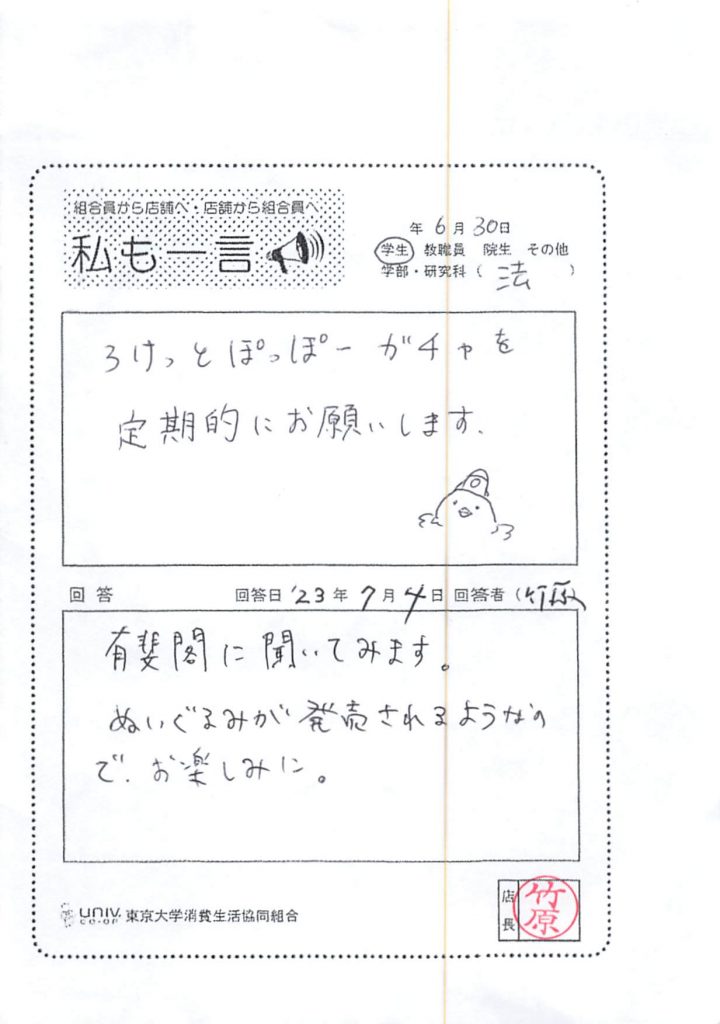 組合員から店舗へ・店舗から組合員へ
私も一言
年 6月 30日
学生 教職員 院生 その他
学部・研究科(法)
ろけっとぽっぽーガチャを
定期的にお願いします.
回答 回答日 '23年 7月 4日 回答者(竹原
有斐閣に聞いてみます。
ぬいぐるみが発売されるようなの
で、お楽しみに。
UNIV. CO-OP 東京大学消費生活協同組合
店長 竹原